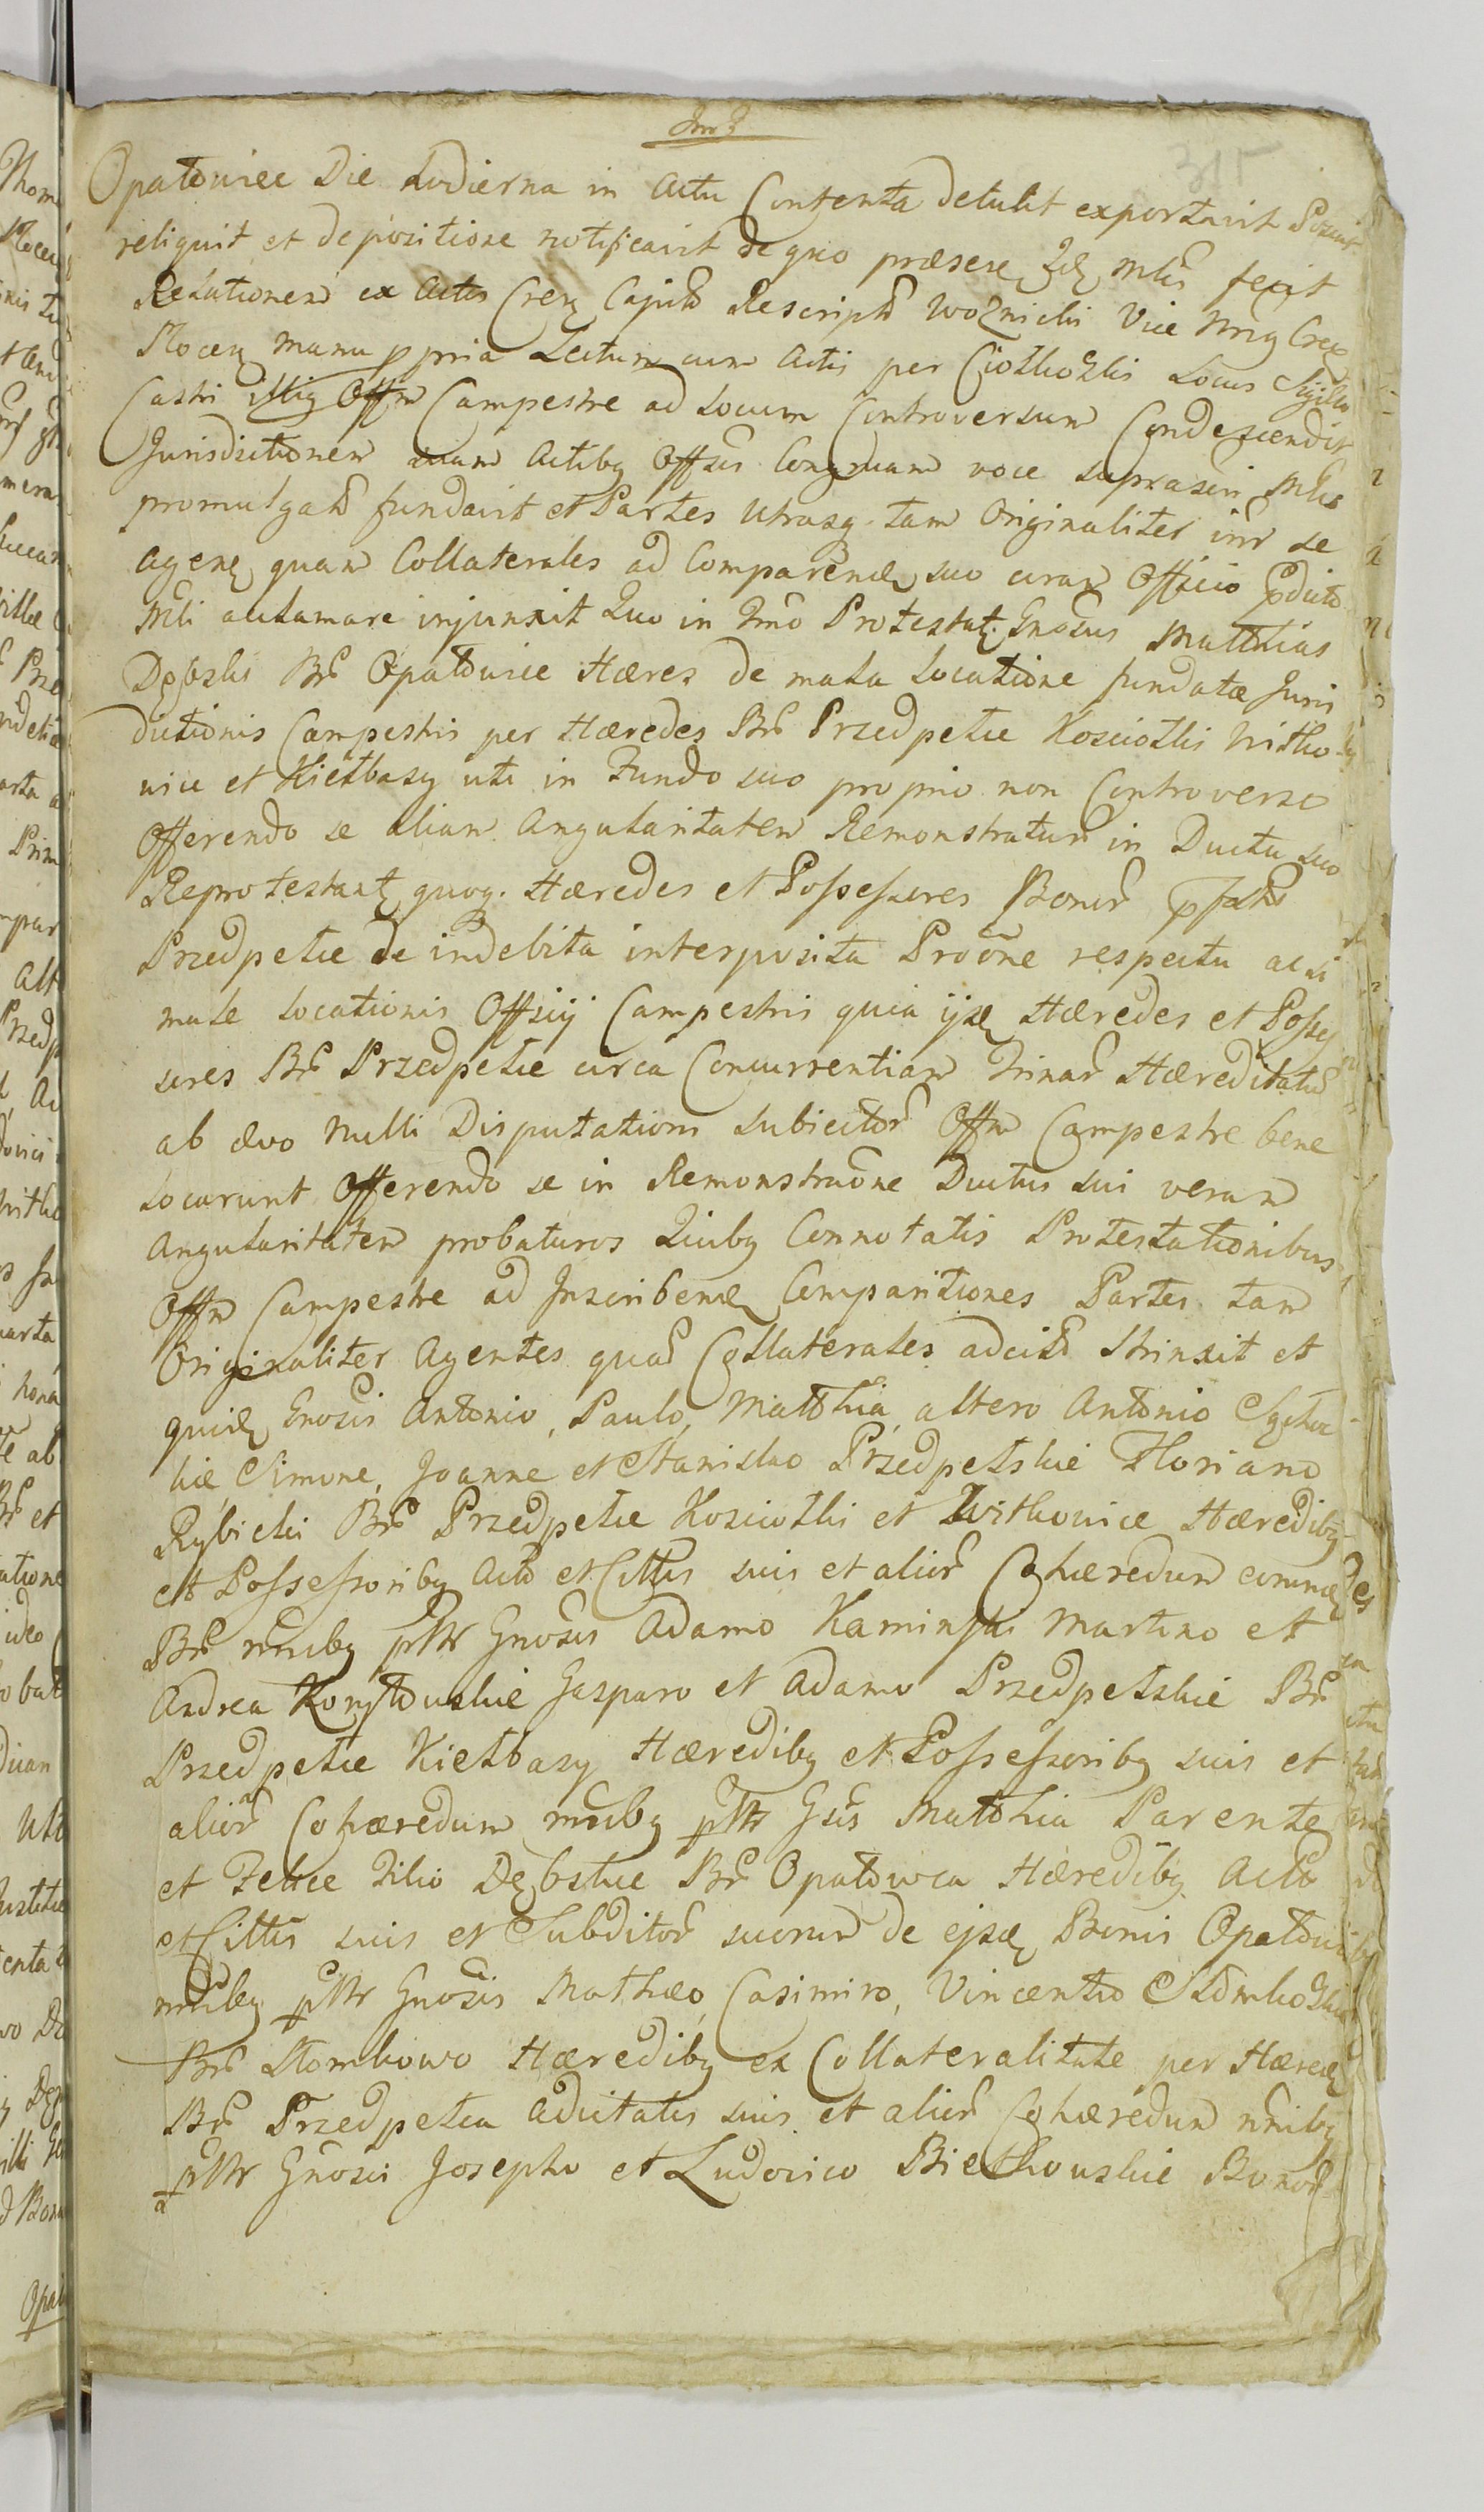 315
Opatowiec Die hodierna in Actu Contenta detulit exportavit Posuit
reliquit et depositione notificavit de quo præsens Idẽ Mlis fecit
Relationem ex Actis Crẽ Capitł Rescriptł Woznicki Vice Nrig Crẽ
Plocen manu ppria Lectum cum Actis per Ciołkoski Locus Sigilli
Castri illig Offm Campestre ad Locum Controversum Condescendit
Jurisdictionem suam Actibg Offsis Congruam voce suprascri Mlis
promulgatł fundavit et Partes utrasq. tam Originaliter inr se
Agenẽ quam Collaterales ad Comparenđ suo coram Officio pdicto
Mli acclamare injunxit Quo in Tmõ Protestat. Gnosus Matthias
Dębski Br̃ Opatowiec Hæres de mala Locatione fundatæ Juris
dictionis Campestris per Hæredes Br̃ Przedpełce Kosciołki Witko-
wice et Kiełbasy uti in Fundo suo proprio non Controverso
Offerendo se aliam Angularitatem Remonstratur̃ in Ductu suo
Reprotestant quoq. Hæredes et Possessores Bonor̃ pfatł
Przedpelce de indebita interposita Proõne respectu acsi
male Locationis Offcij Campestris quia ijdẽ Hæredes et Posses
sores Br̃ Przedpelce circa Concurrentiam Trinar̃ Hæreditatũ
ab ævo Nulli Disputationi subiectar̃ Offm Campestre bene
Locarunt Offerendo se in Remonstraõne Ductus sui veram
Angularitatem probaturos Quibg Connotatis Protestationibus
Offm Campestre ad Inscribenđ Comparitiones Partes tam
Originaliter Agentes quam Collaterales adcitł strinxit et
quidẽ Gnosis Antonio, Paulo, Matthia, altero Antonio
Simone, Joanne et Stanislao Przedpełskie Floriano
Rybicki Br̃ Przedpelce Kosciołki et Witkowice Hæredibg
et Possessoribg Actł et Cittis suis et alior̃ Cohæredum eorumdẽ
Br̃ nñibg pttr Gnosis Adamo Kaminski Martino et
Andrea Gasparo et Adamo Przedpełskie Br̃
Przedpelce Kiełbasy Hæredibg et Possessoribg suis et
alior̃ Cohæredum nñibg pttr Gsis Matthia Parente
et Felice Filio Dębskie Br̃ Opatowca Hæredibg Actł
et Cittis suis et Subditor̃ suorum de ejsdẽ Bonis Opatowi
nñibg pttr Gnosis Mathæo, Casimiro, Vincentio Słomkoskie
Br̃ Słomkowo Hæredibg ex Collateralitate per Hæredẽ
Br̃ Przedpelca Adcitatis suis et alior̃ Cohæredum nñibg
pttr Gnosis Josepho et Ludovico Bielkowskie Bonor̃